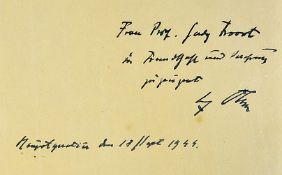 Frau Prof. Gerdy Troost
in Freundschaft und Verehrung
zugeeignet
Hauptquartier den 17 Sept. 1944.